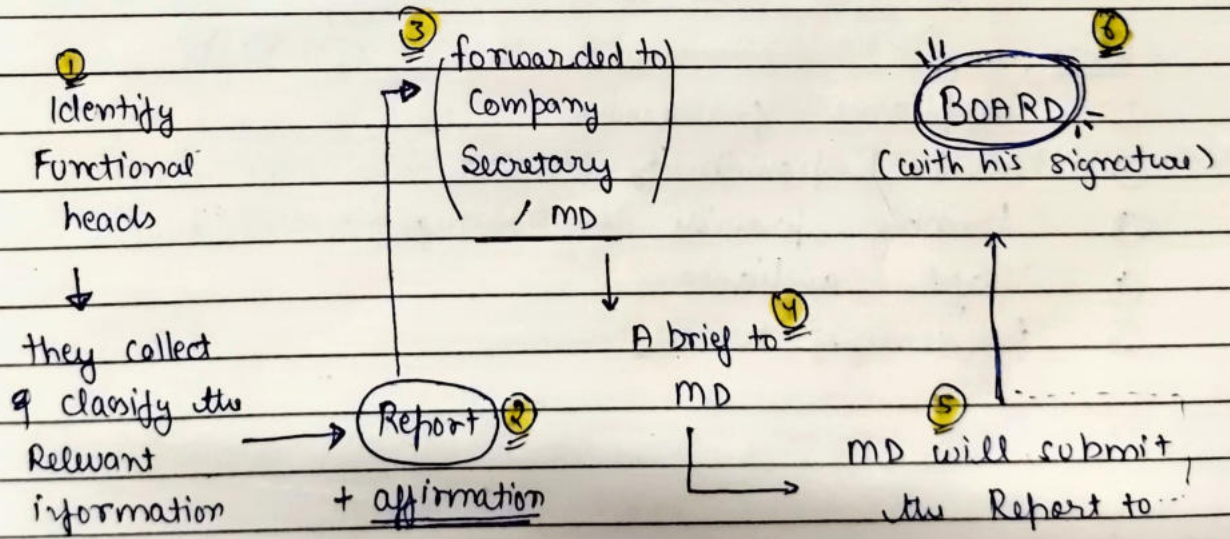 1
Identify
Functional
heads
they collect
& classify the
Relevant
information
Report 2
+ affirmation
3
forwarded to
Company
Secretary
/ MD
A brief to 4
MD
5
MD will submit
the Report to
6
BOARD
(with his signature)